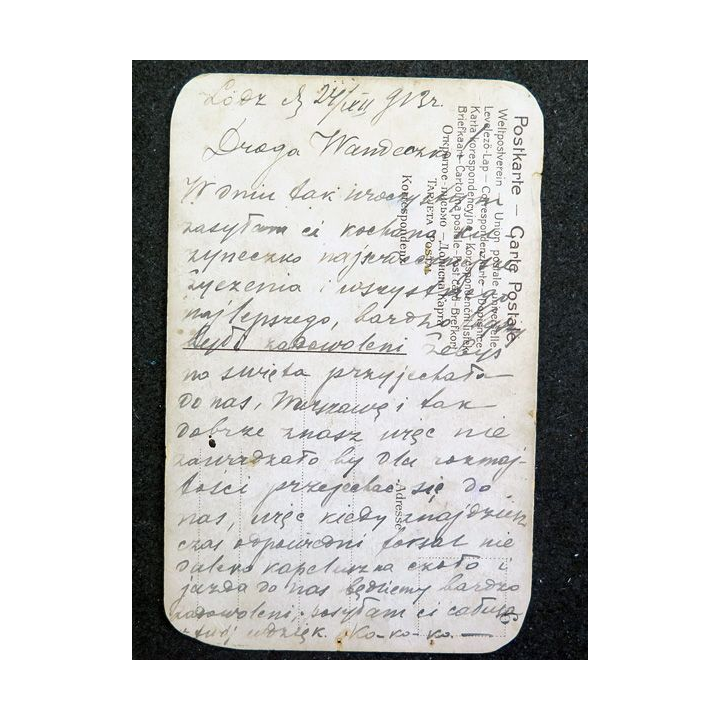 Łódź d. 24/XII 913 r.
Droga Wandeczko
W dniu tak uroczystym
zasyłam ci kochana
najserdeczniejsze
życzenia i wszystkiego
najlepszego, bardzo
będę zadowoleni żebyś
na święta przyjechała
do nas, Warszawę i tak
dobrze znasz więc nie
zawadzało by dla rozmaj-
tości przejechać się do
nas, więc kiedy znajdziesz
czas odpowiedni forsal nie
daleko kapelusz na czoło i
jazda do nas będziemy bardzo
zadowoleni. zasyłam ci całusa
twój wdzięk. Ko-ko-ko. —
Postkarte — Carte Postale
Weltpostverein — Union postale universelle
Levelező-Lap — Correspondenzkarte — Dopisnice
Karta korespondencyjna — Korespondenční lístek
Briefkaart — Cartolina postale — Post card — Brefkort
Открытое письмо — Дописна Карта
Tarjeta Postal
Korrespondenz
Adresse